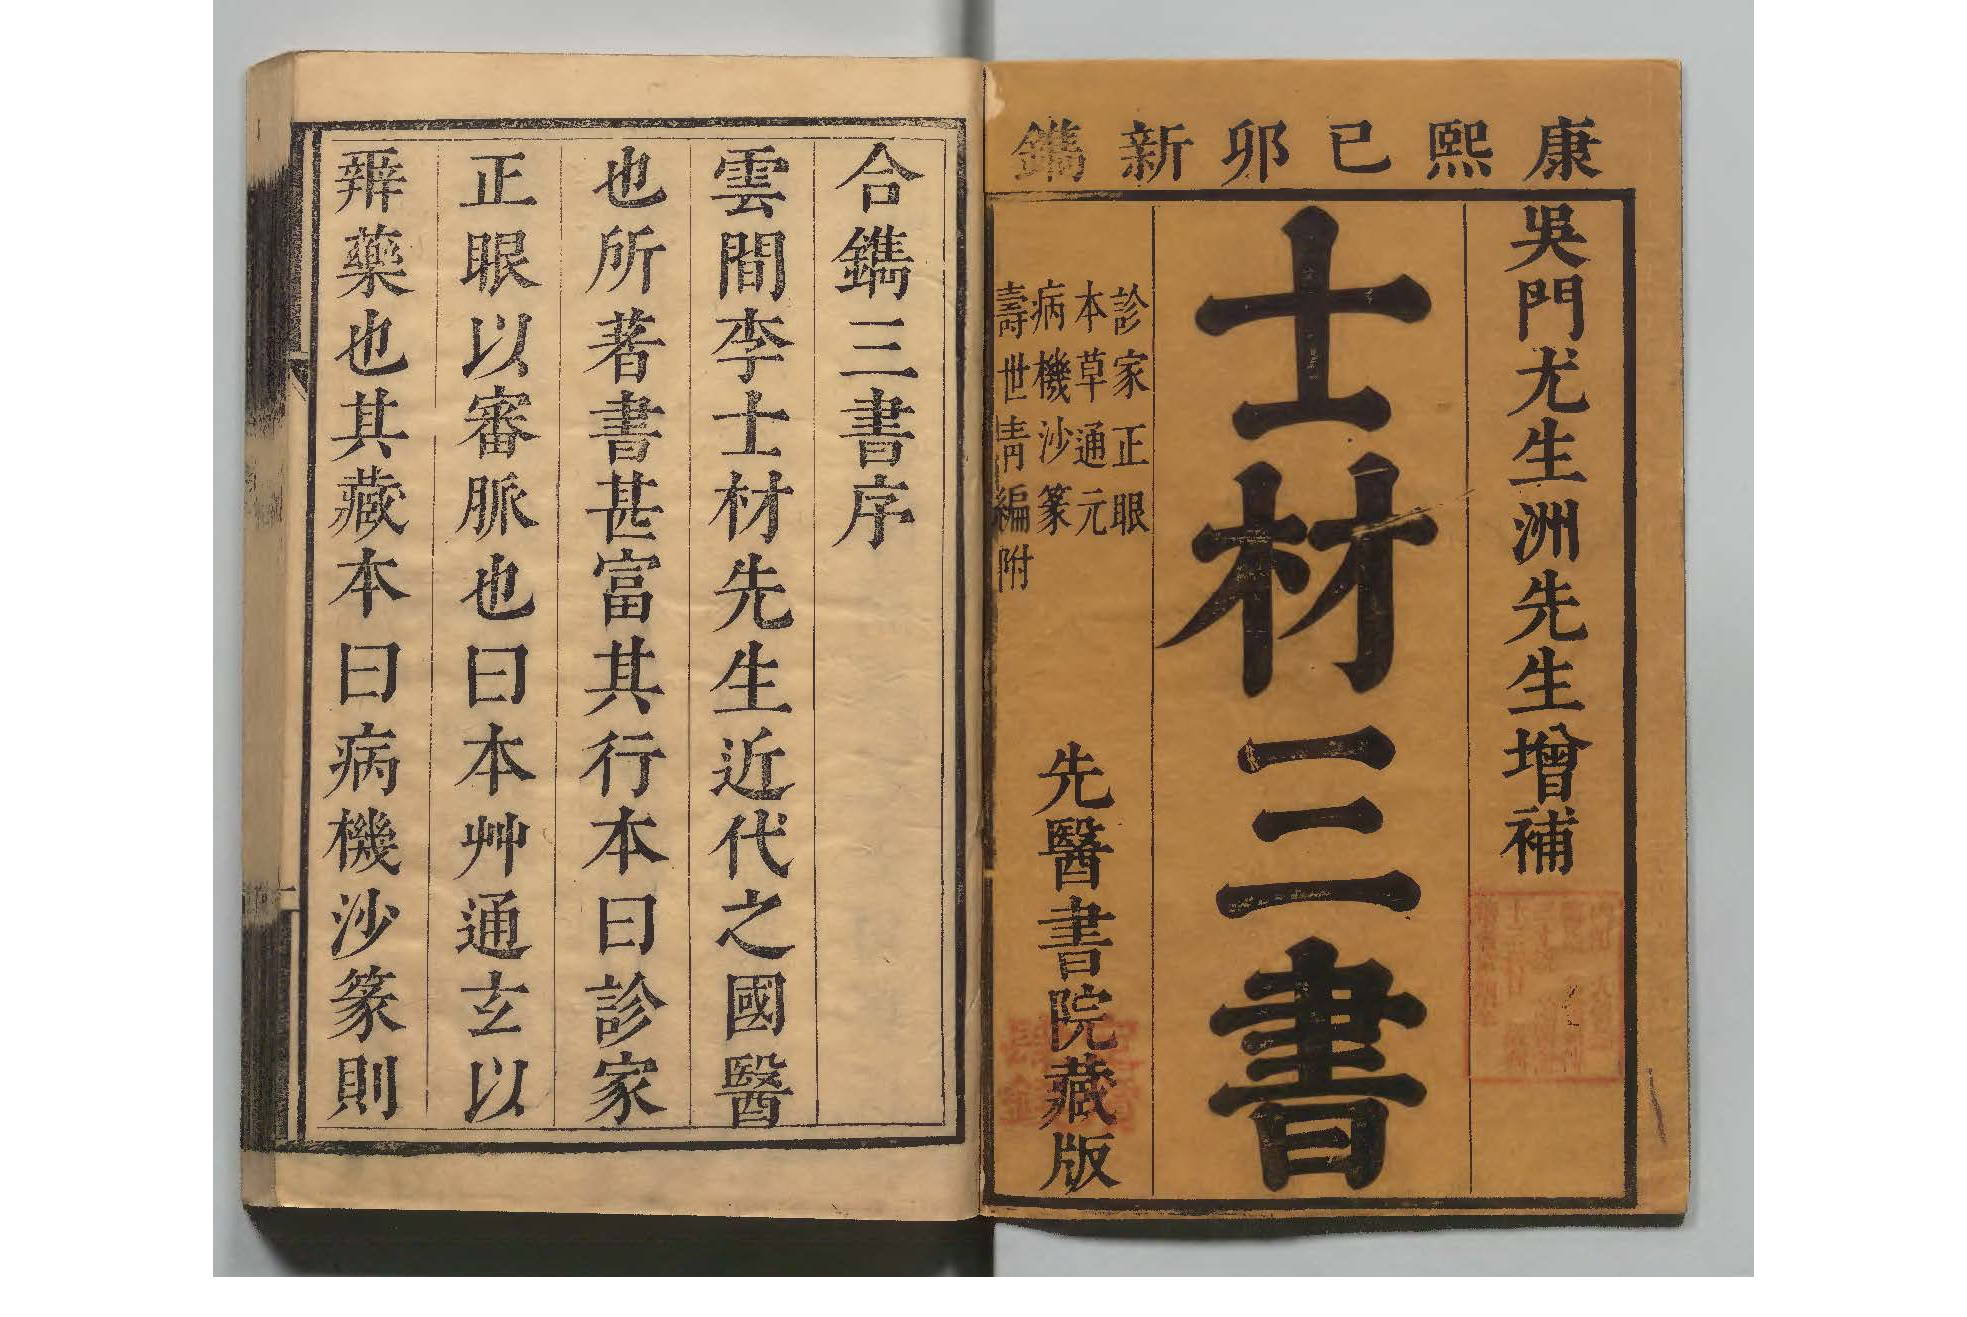 康熙己卯新鐫
吳門尤生洲先生增補
士材三書
診家正眼
本草通元
病機沙篆
壽世青編附
先醫書院藏版
合鐫三書序
雲間李士材先生近代之國醫
也所著書甚富其行本曰診家
正眼以審脈也曰本艸通玄以
辨藥也其藏本曰病機沙篆則